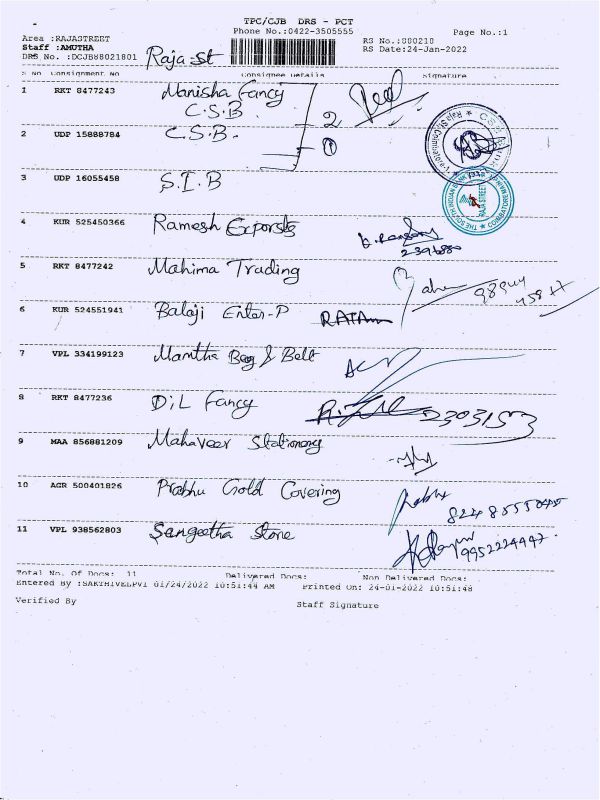 TPC/CJB DRS - PCT
Phone No.:0422-3505555
Page No.:1
Area :RAJASTREET
Staff :AMUTHA
DRS No. :DCJB88021801
Raja st
RS No.:000210
RS Date:24-Jan-2022
S No Consignment No Consignee Details Signature
1 RKT 8477243 Manisha Fancy
C.S.B.
2
2 UDP 15888784 C.S.B.
1
3 UDP 16055458 S.I.B
4 KUR 525450366 Ramesh Exports
5 RKT 8477242 Mahima Trading
6 KUR 524551941 Balaji Enter-P
7 VPL 334199123 Mamtha Bag & Belt
8 RKT 8477236 DiL Fancy
2303153
9 MAA 856881209 Mahaveer Stationary
10 AGR 500401826 Prabhu Gold Covering
11 VPL 938562803 Sangeetha Store
9952224997
Total No. Of Docs: 11 Delivered Docs: Non Delivered Docs:
Entered By :SAKTHIVELPVI 01/24/2022 10:51:44 AM Printed On: 24-01-2022 10:51:48
Verified By
Staff Signature